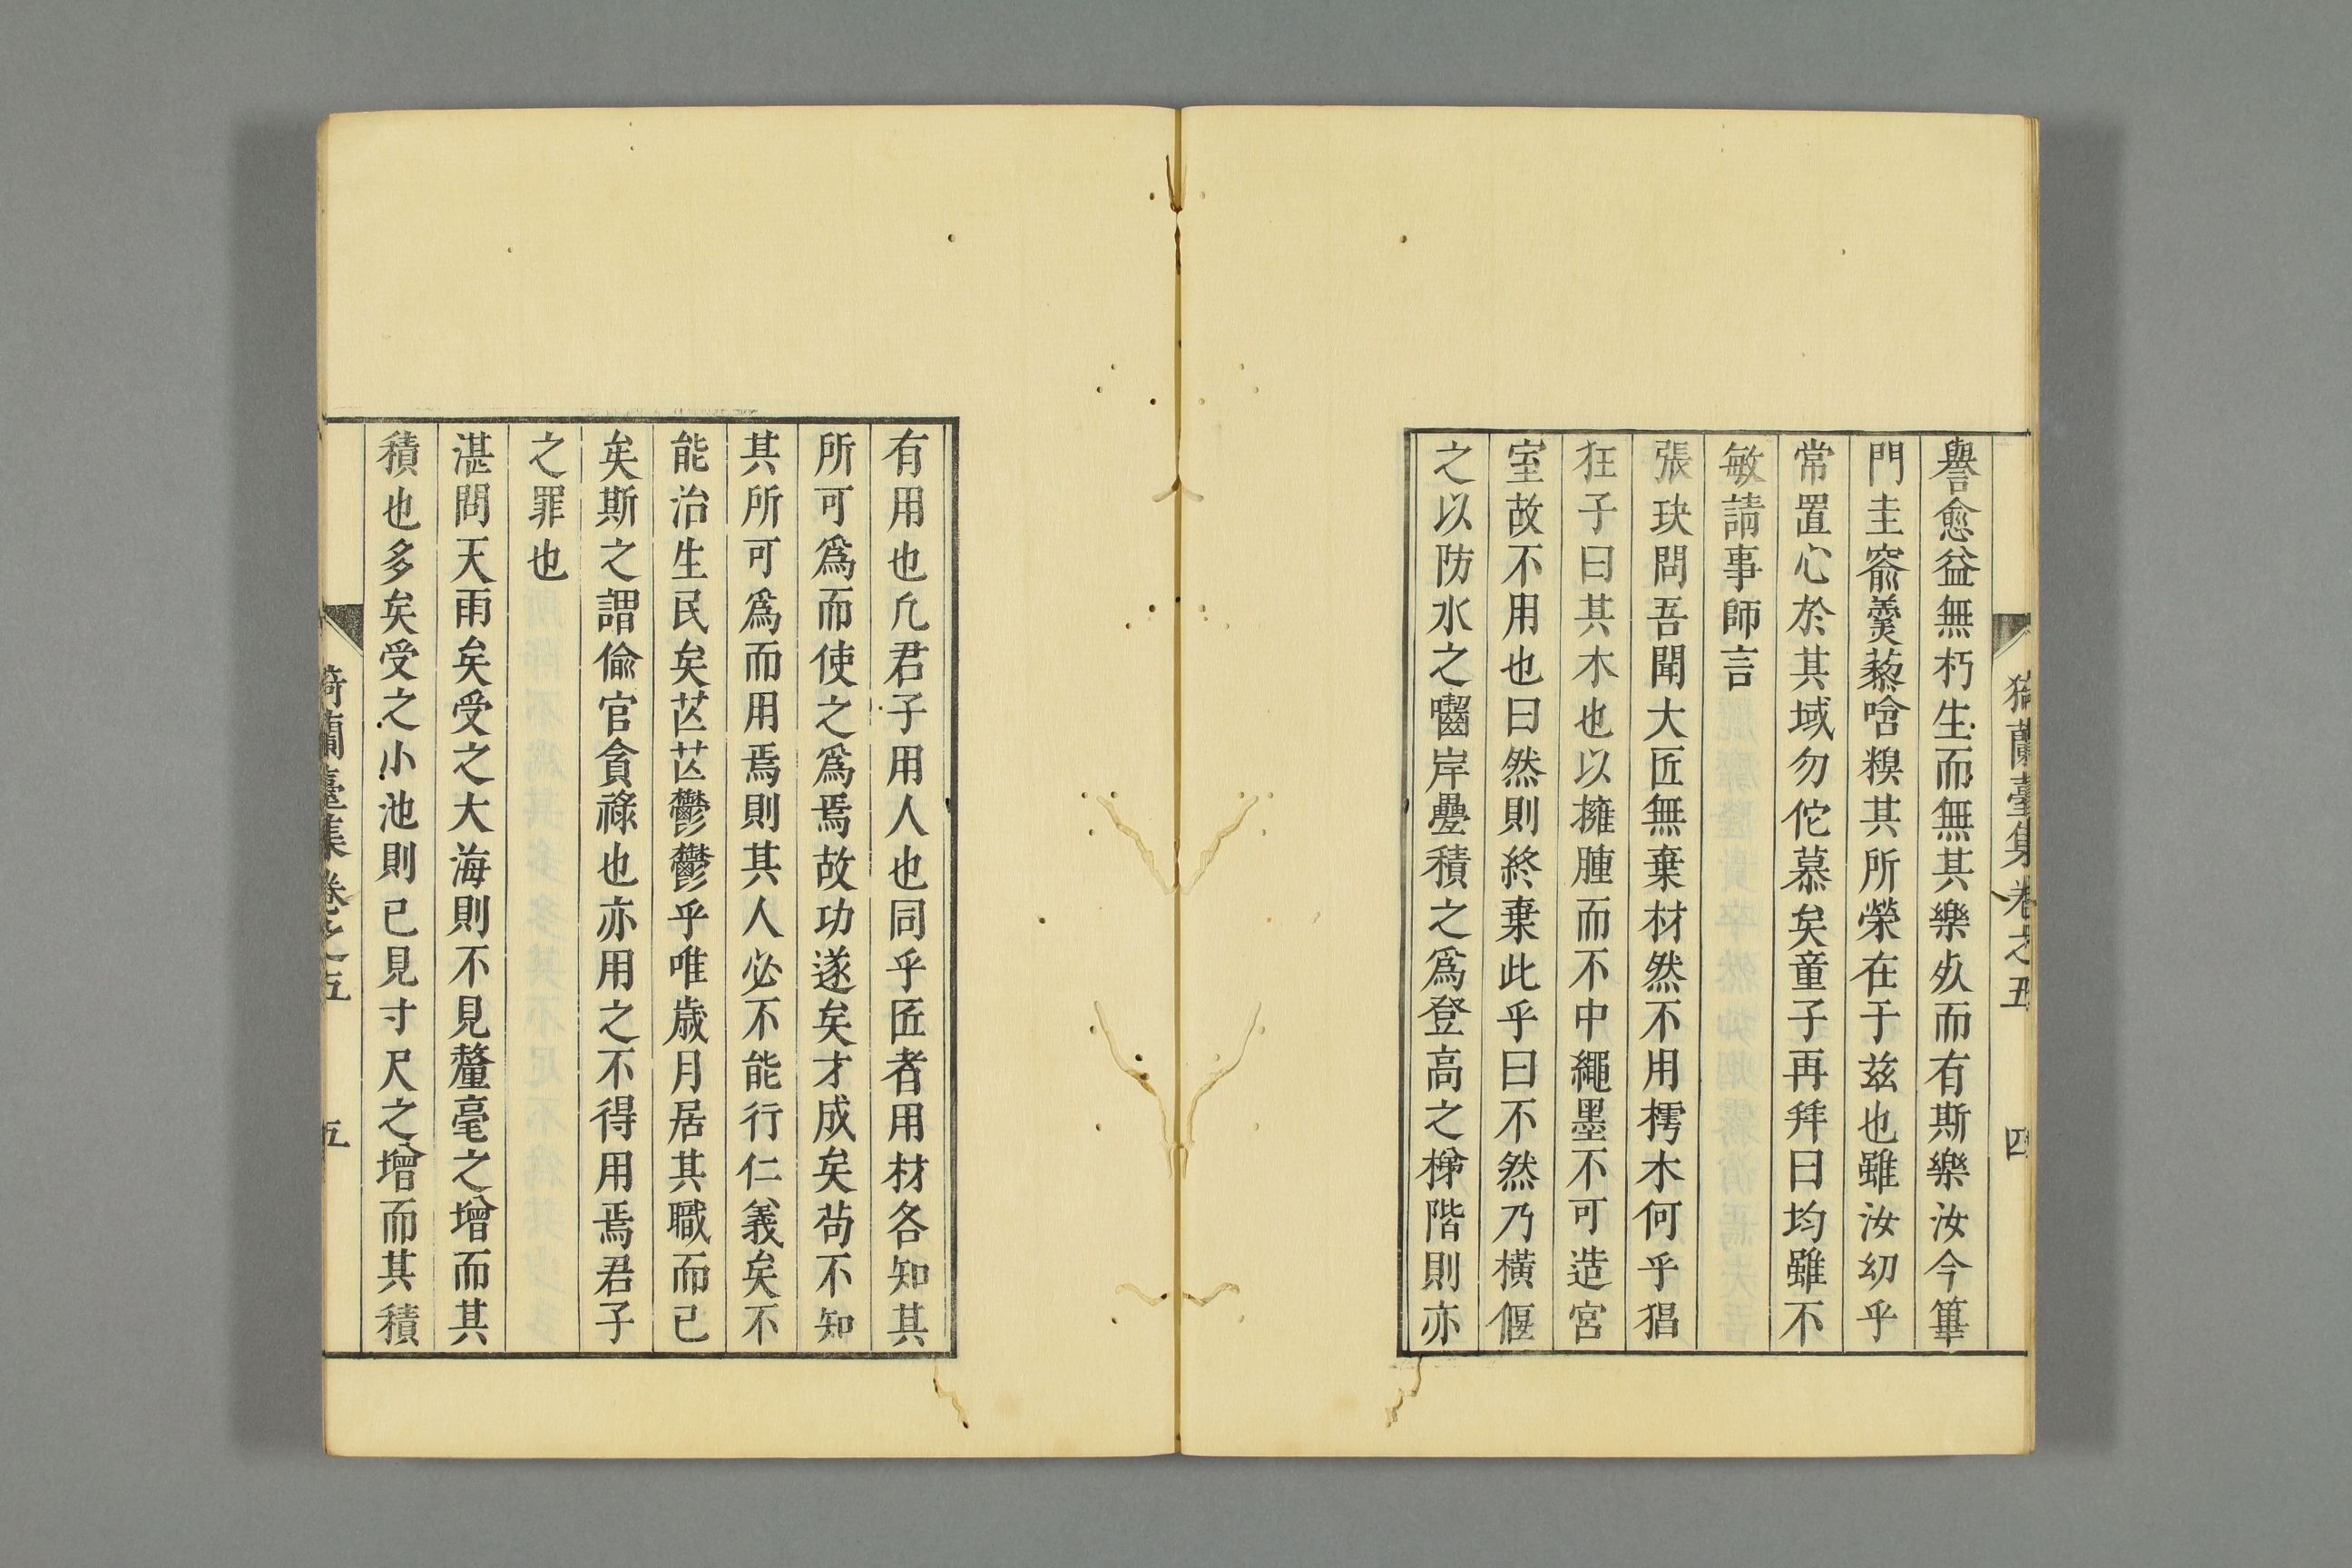 猗蘭臺集 卷之五 四
譽愈益無朽生而無其樂乆而有斯樂汝今篳
門圭窬羹藜唅糗其所榮在于茲也雖汝幼乎
常置心於其域勿佗慕矣童子再拜曰均雖不
敏請事師言
張玦問吾聞大匠無棄材然不用樗木何乎猖
狂子曰其木也以擁腫而不中繩墨不可造宮
室故不用也曰然則終棄此乎曰不然乃橫偃
之以防水之囓岸壘積之爲登高之梯階則亦
有用也凡君子用人也同乎匠者用材各知其
所可爲而使之爲焉故功遂矣才成矣苟不知
其所可爲而用焉則其人必不能行仁義矣不
能治生民矣芒芒鬱鬱乎唯歲月居其職而已
矣斯之謂偸官貪祿也亦用之不得用焉君子
之罪也
湛問天雨矣受之大海則不見釐毫之增而其
積也多矣受之小池則已見寸尺之增而其積
猗蘭臺集 卷之五 五